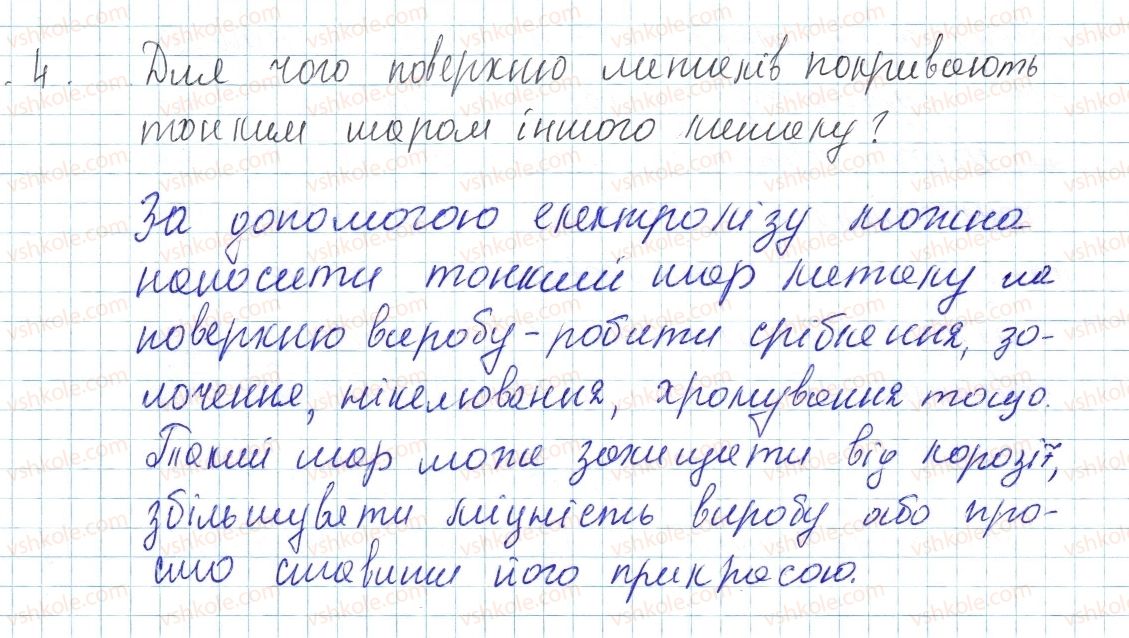 4. Для чого поверхню металів покривають
тонким шаром іншого металу?
За допомогою електролізу можна
наносити тонкий шар металу на
поверхню виробу - робити сріблення, зо-
лочення, нікелювання, хромування тощо.
Такий шар може захищати від корозії,
збільшувати міцність виробу або про-
сто ставити його прикрасою.